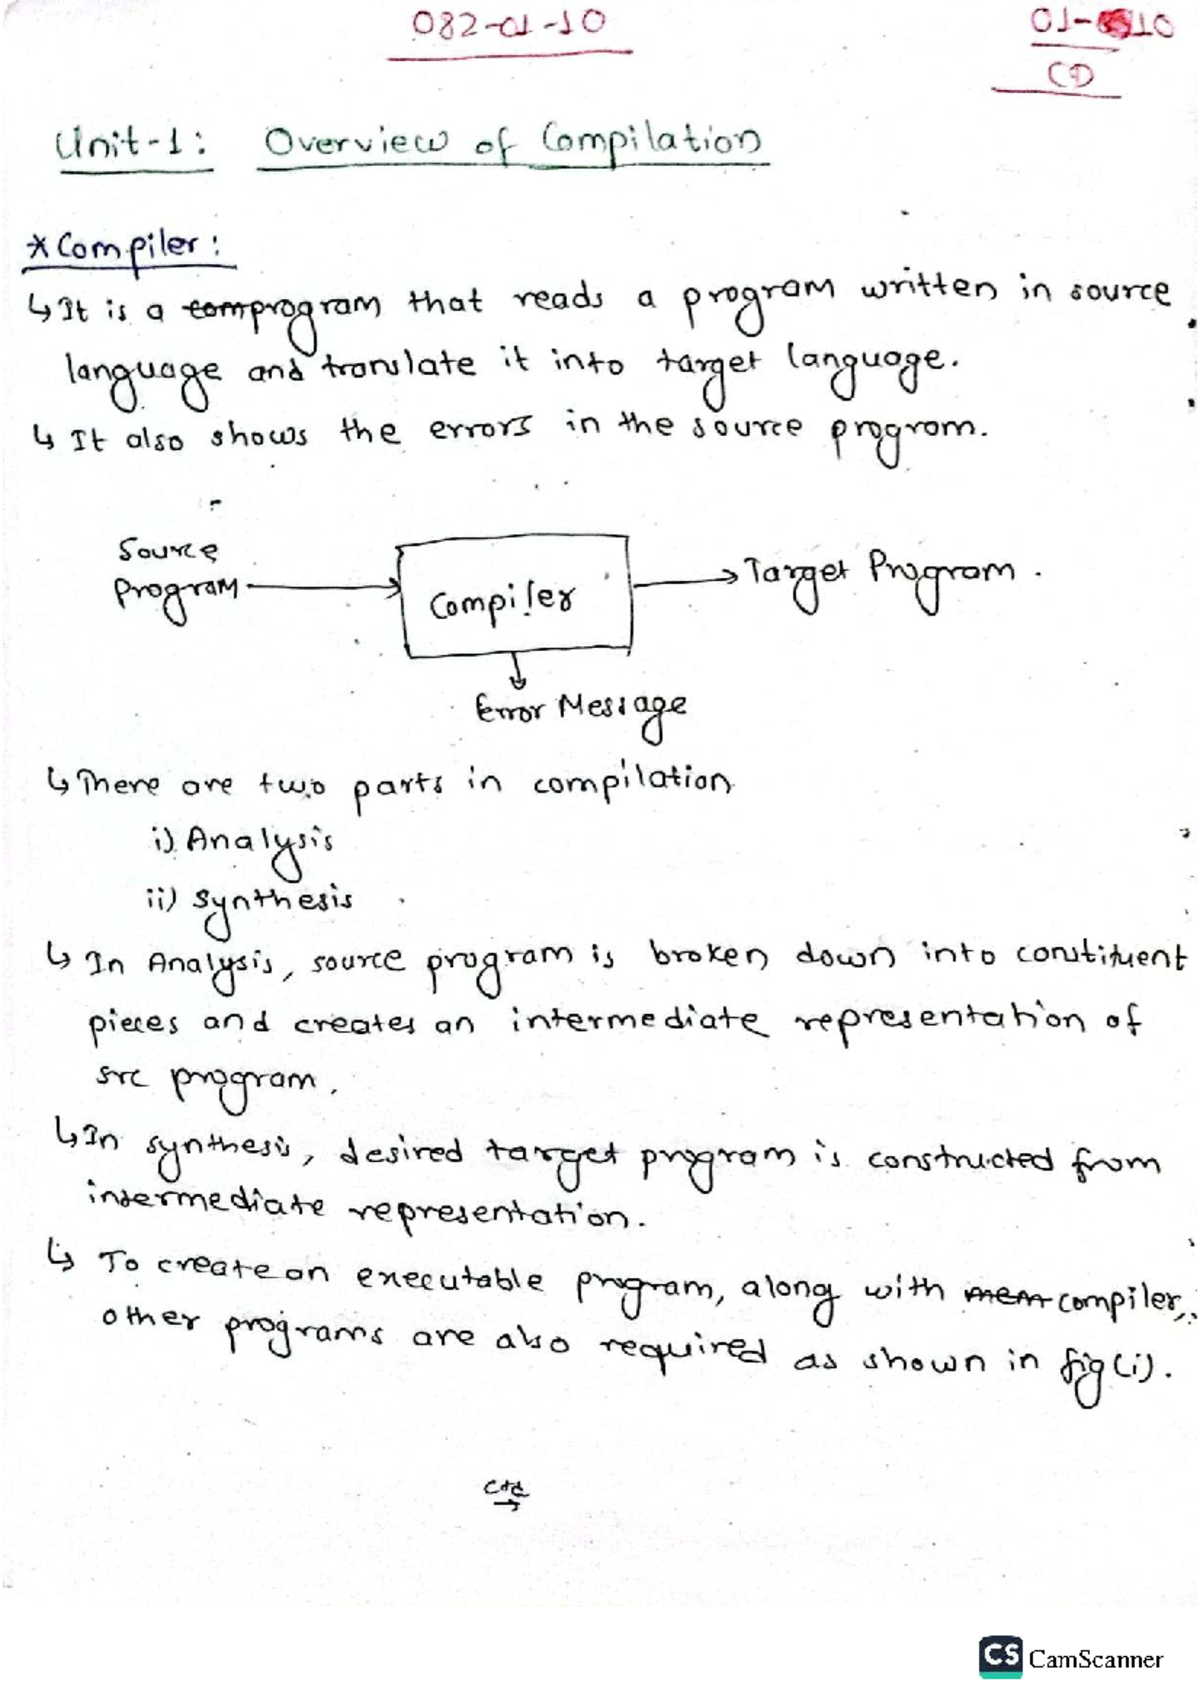 082-01-10
01-10
CD
Unit-1: Overview of Compilation
* Compiler:
↳ It is a comprogram that reads a program written in source
language and translate it into target language.
↳ It also shows the errors in the source program.
Source
Program
Compiler
Target Program.
Error Message
↳ There are two parts in compilation
i) Analysis
ii) Synthesis
↳ In Analysis, source program is broken down into constituent
pieces and creates an intermediate representation of
src program.
↳ In synthesis, desired target program is constructed from
intermediate representation.
↳ To create an executable program, along with mem compiler,
other programs are also required as shown in fig(i).
ctd
CS CamScanner